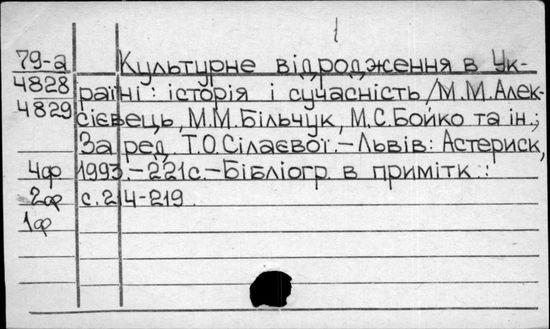 1
79-а Культурне відродження в Ук-
4828 раїні: історія і сучасність /М.М.Алек-
4829 сієвець, М.М.Більчук, М.С.Бойко та ін.;
За ред. Т.О.Сілаєвої.-Львів: Астериск,
4ф 1993.-221с.-Бібліогр. в примітк.:
2ф с.214-219.
1ф